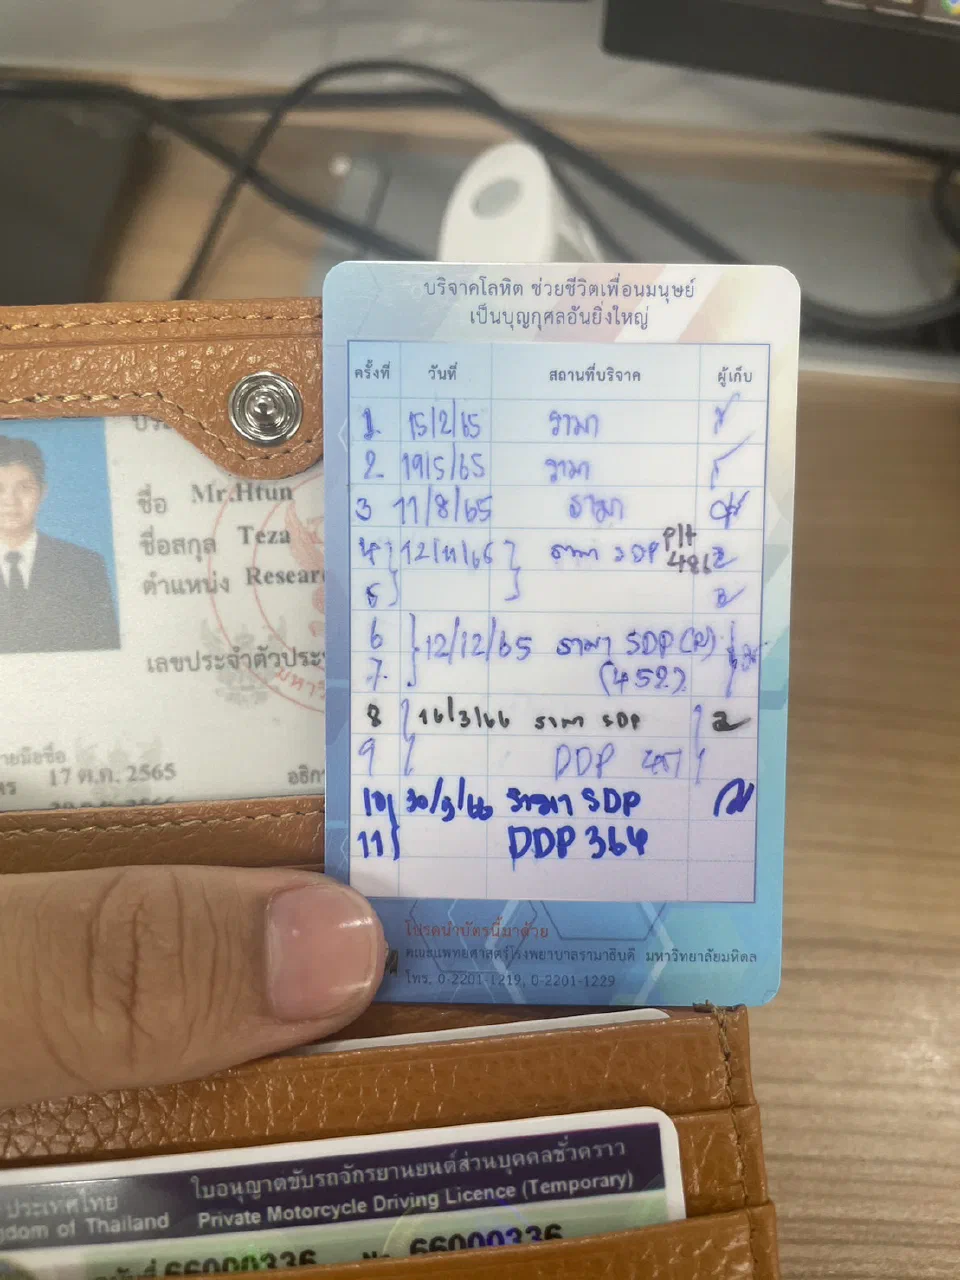 บริจาคโลหิต ช่วยชีวิตเพื่อนมนุษย์
เป็นบุญกุศลอันยิ่งใหญ่
ครั้งที่ วันที่ สถานที่บริจาค ผู้เก็บ
1. 15/2/65 รามา
2 19/5/65 รามา
3 11/8/65 รามา
4 12/11/65 รามา SDP Plt
5
6 12/12/65 รามา SDP
7. (452)
8 16/3/66 รามา SDP
9 DDP
10 30/5/66 รามา SDP
11 DDP 364
โปรดนำบัตรนี้มาด้วย
คณะแพทยศาสตร์โรงพยาบาลรามาธิบดี มหาวิทยาลัยมหิดล
โทร. 0-2201-1219, 0-2201-1229
ชื่อ Mr.Htun
ชื่อสกุล Teza
ตำแหน่ง Resear
เลขประจำตัวประ
ายมือชื่อ
17 ต.ค. 2565
ประเทศไทย ใบอนุญาตขับรถจักรยานยนต์ส่วนบุคคลชั่วคราว
gdom of Thailand Private Motorcycle Driving Licence (Temporary)
66000336 No. 66000336